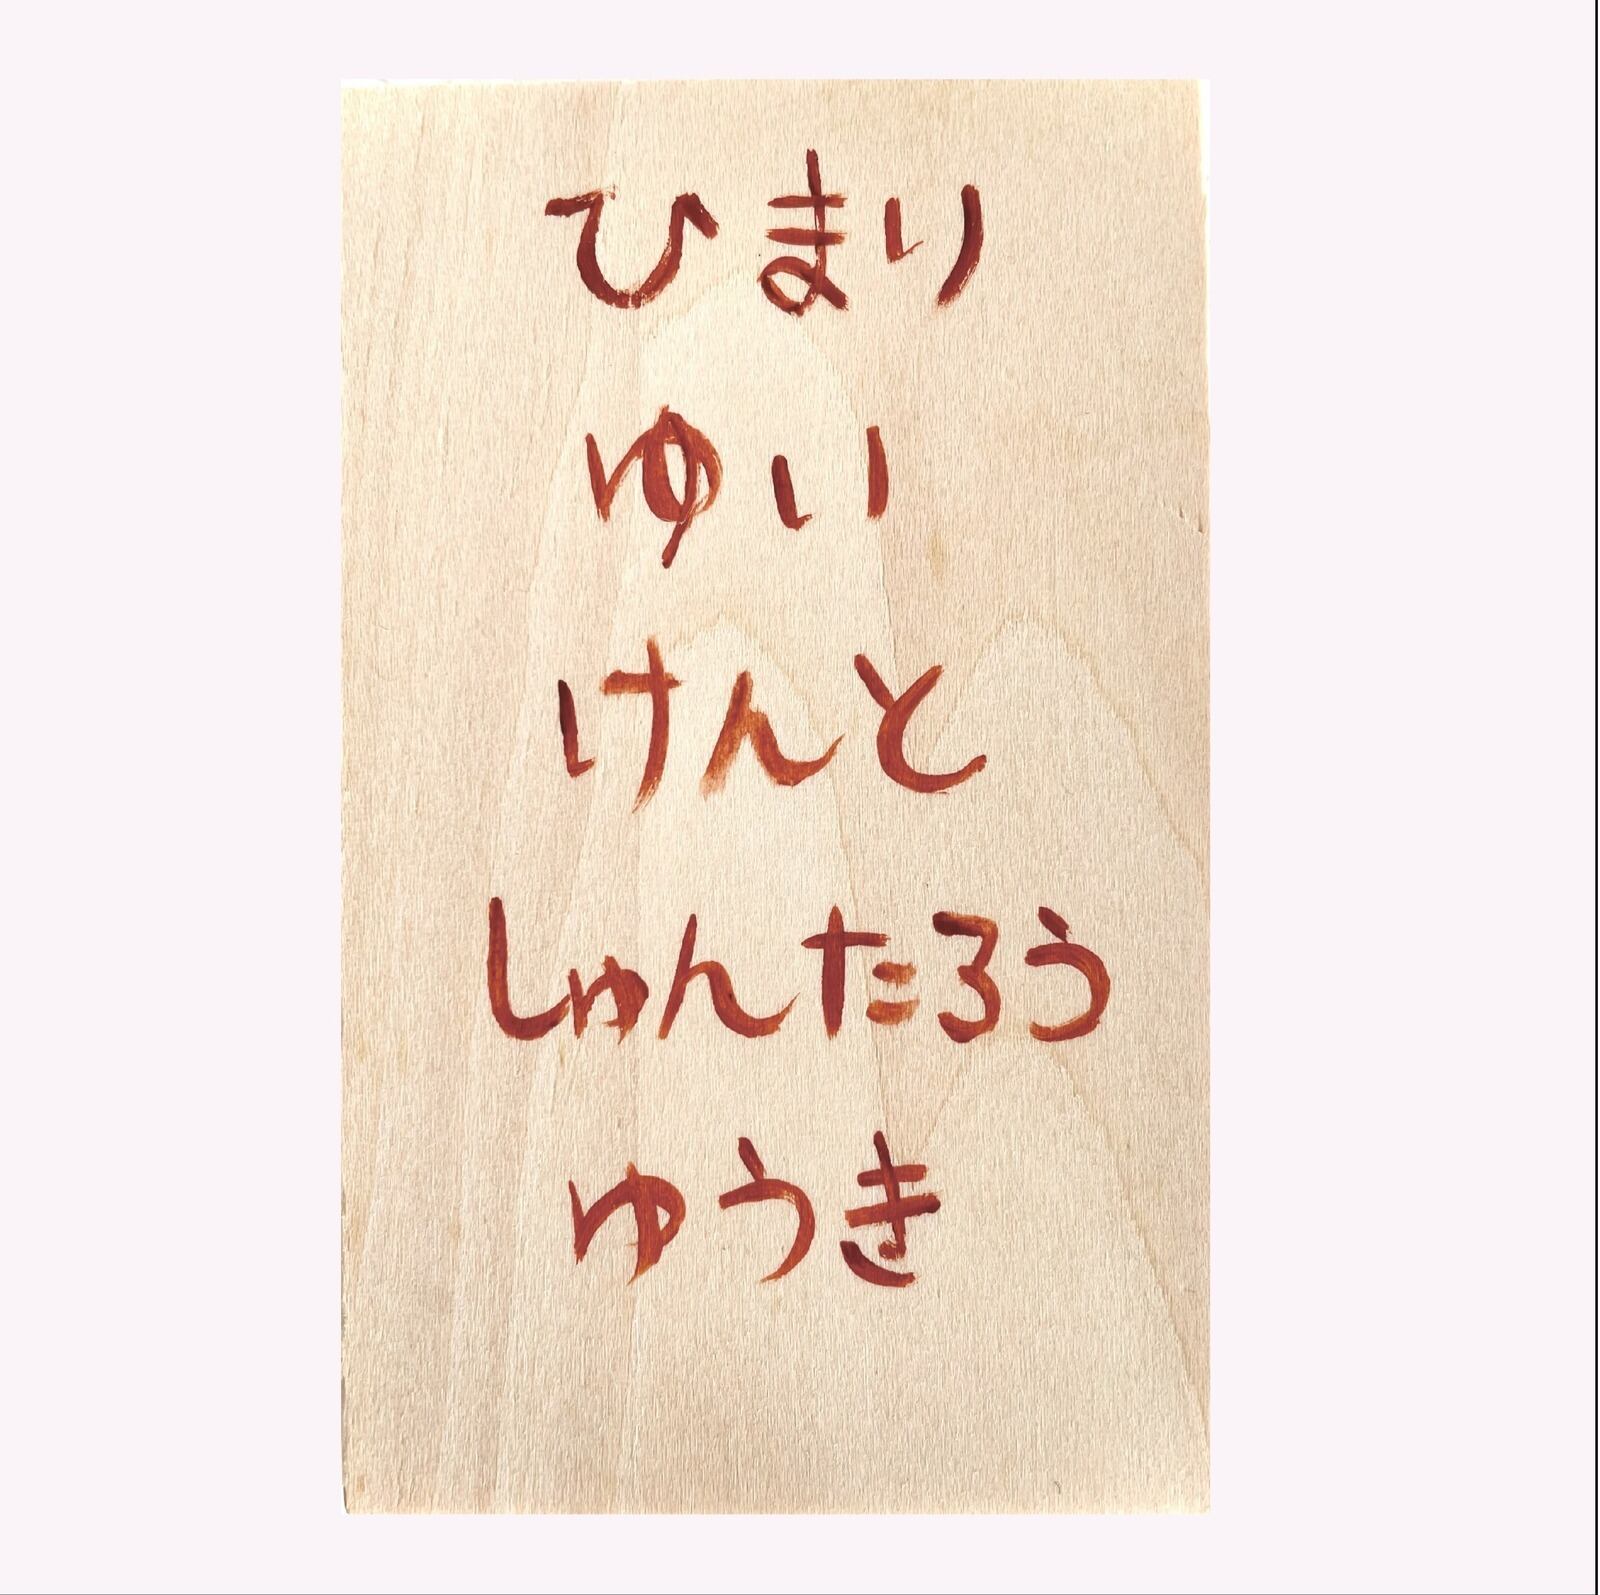 ひまり
ゆい
けんと
しゅんたろう
ゆうき